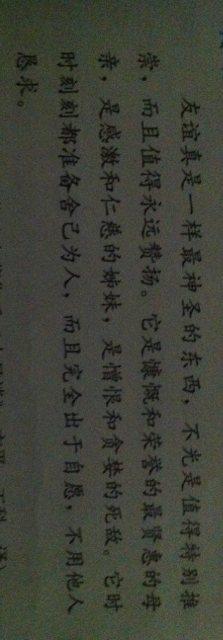 友谊真是一样最神圣的东西，不光是值得特别推
崇，而且值得永远赞扬。它是慷慨和荣誉的最贤惠的母
亲，是感激和仁慈的姊妹，是憎恨和贪婪的死敌。它时
时刻刻都准备舍己为人，而且完全出于自愿，不用他人
恳求。